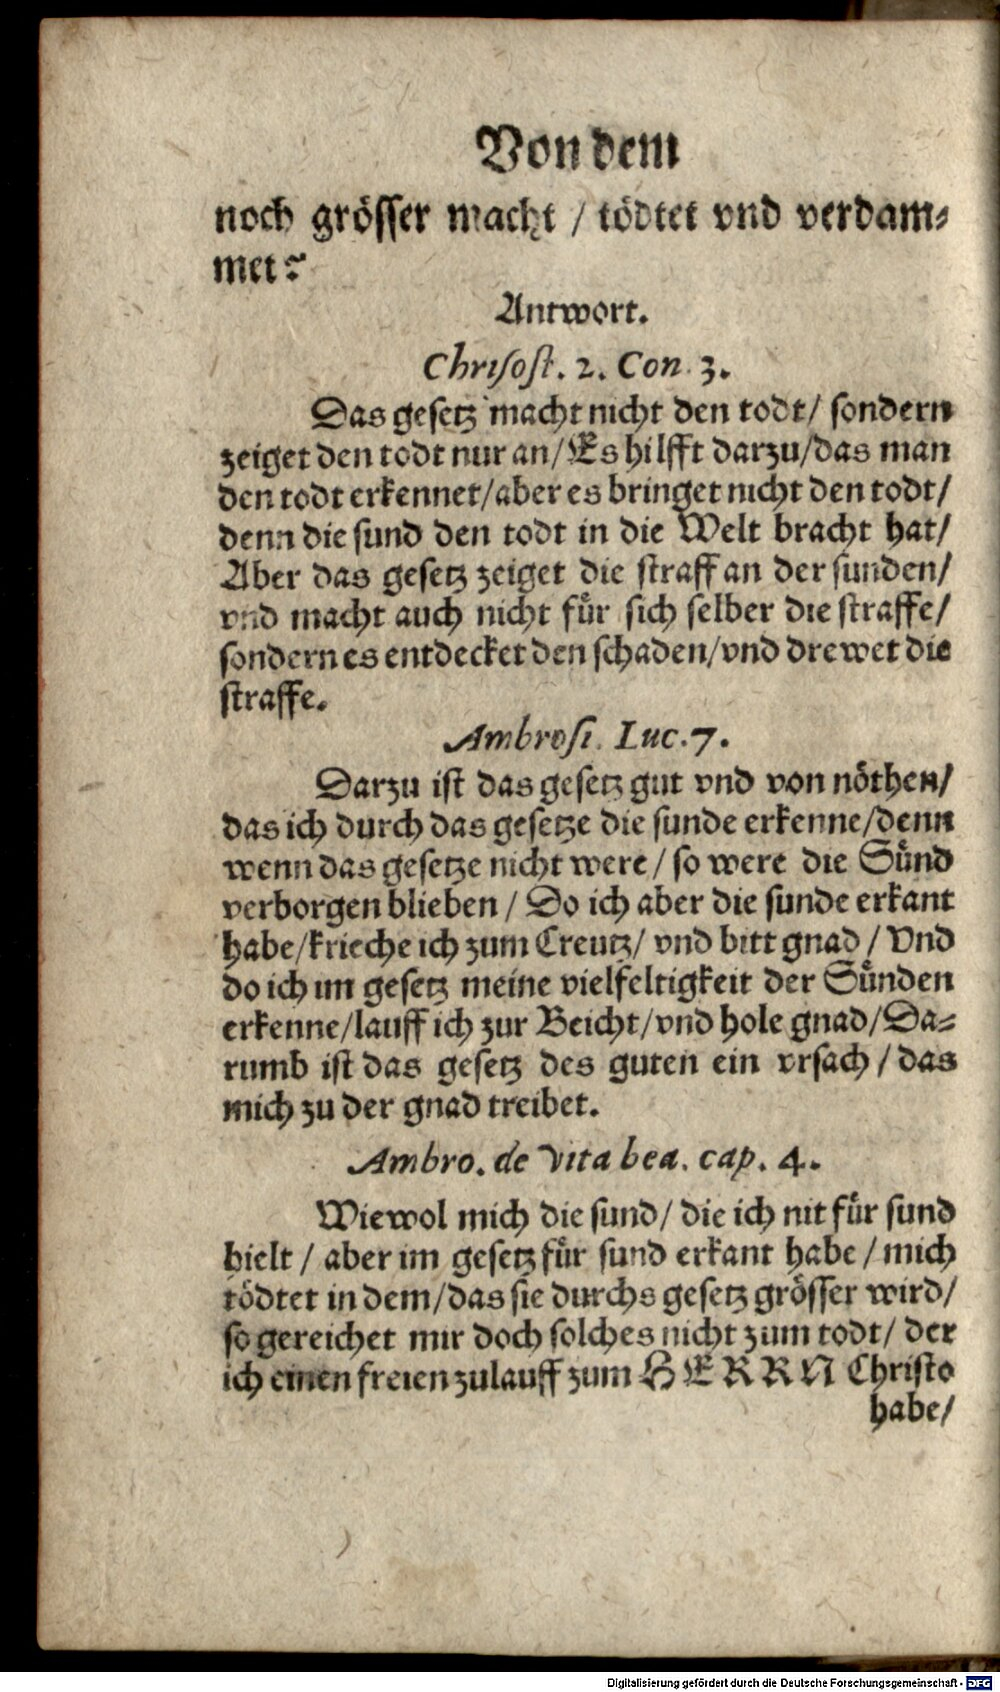 Von dem
noch grösser macht / tödtet vnd verdam⸗
met?
Antwort.
Chrisost. 2. Con. 3.
Das gesetz macht nicht den todt / sondern
zeiget den todt nur an / Es hilfft darzu / das man
den todt erkennet / aber es bringet nicht den todt /
denn die sund den todt in die Welt bracht hat /
Aber das gesetz zeiget die straff an der sunden /
vnd macht auch nicht für sich selber die straffe /
sondern es entdecket den schaden / vnd drewet die
straffe.
Ambrosi. Luc. 7.
Darzu ist das gesetz gut vnd von nöthen /
das ich durch das gesetze die sunde erkenne / denn
wenn das gesetze nicht were / so were die Sünd
verborgen blieben / Do ich aber die sunde erkant
habe / krieche ich zum Creutz / vnd bitt gnad / Vnd
do ich im gesetz meine vielfeltigkeit der Sünden
erkenne / lauff ich zur Beicht / vnd hole gnad / Da⸗
rumb ist das gesetz des guten ein vrsach / das
mich zu der gnad treibet.
Ambro. de vita bea. cap. 4.
Wiewol mich die sund / die ich nit für sund
hielt / aber im gesetz für sund erkant habe / mich
tödtet in dem / das sie durchs gesetz grösser wird /
so gereichet mir doch solches nicht zum todt / der
ich einen freien zulauff zum HERRN Christo
habe /
Digitalisierung gefördert durch die Deutsche Forschungsgemeinschaft - DFG